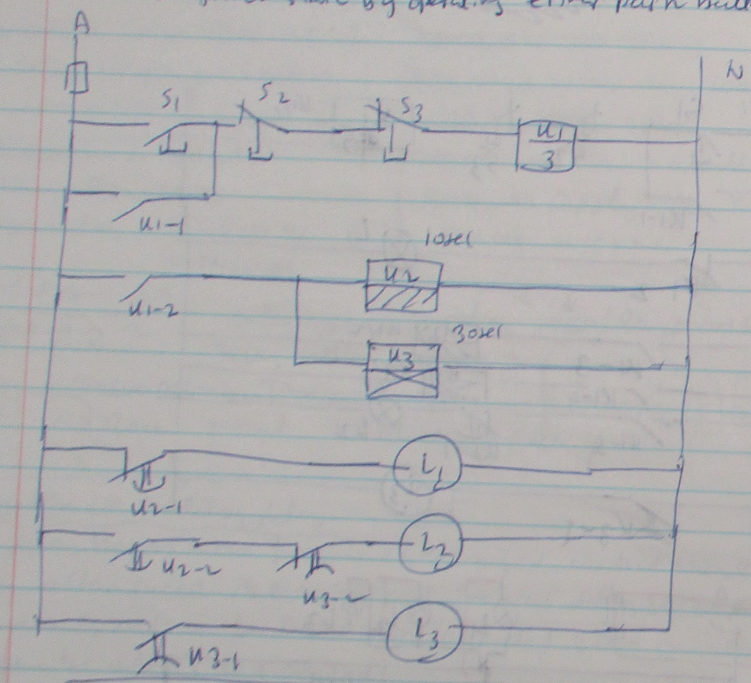 A
N
S1
S2
S3
K1
3
K1-1
10sec
K2
K1-2
30sec
K3
L1
K2-1
L2
K2-2
K3-2
L3
K3-1